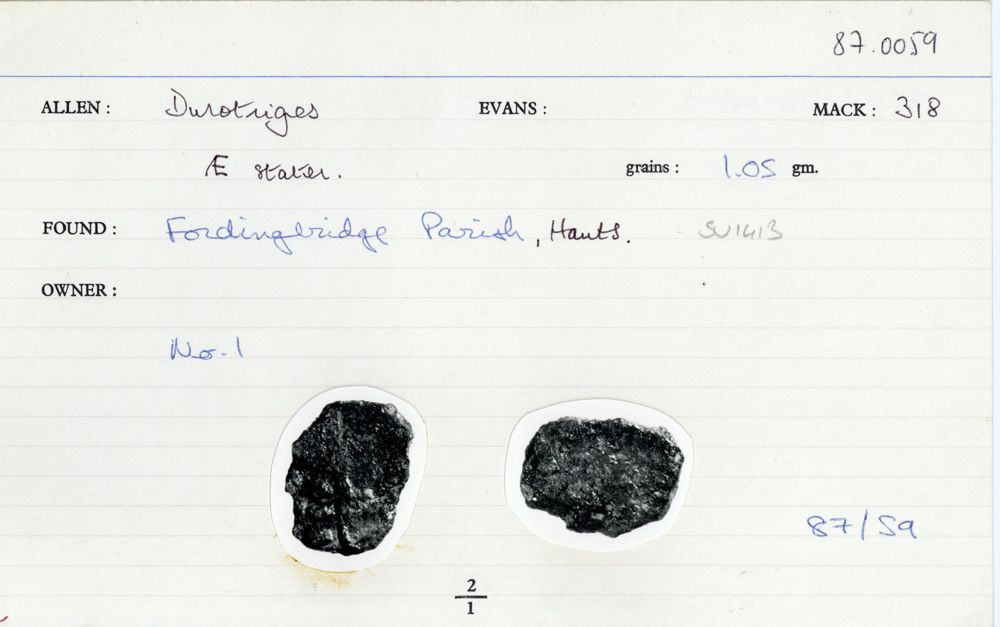 87.0059
ALLEN : Durotriges EVANS : MACK : 318
Æ stater. grains : 1.05 gm.
FOUND : Fordingbridge Parish, Hants. SU1413
OWNER :
No. 1
87/59
2
1